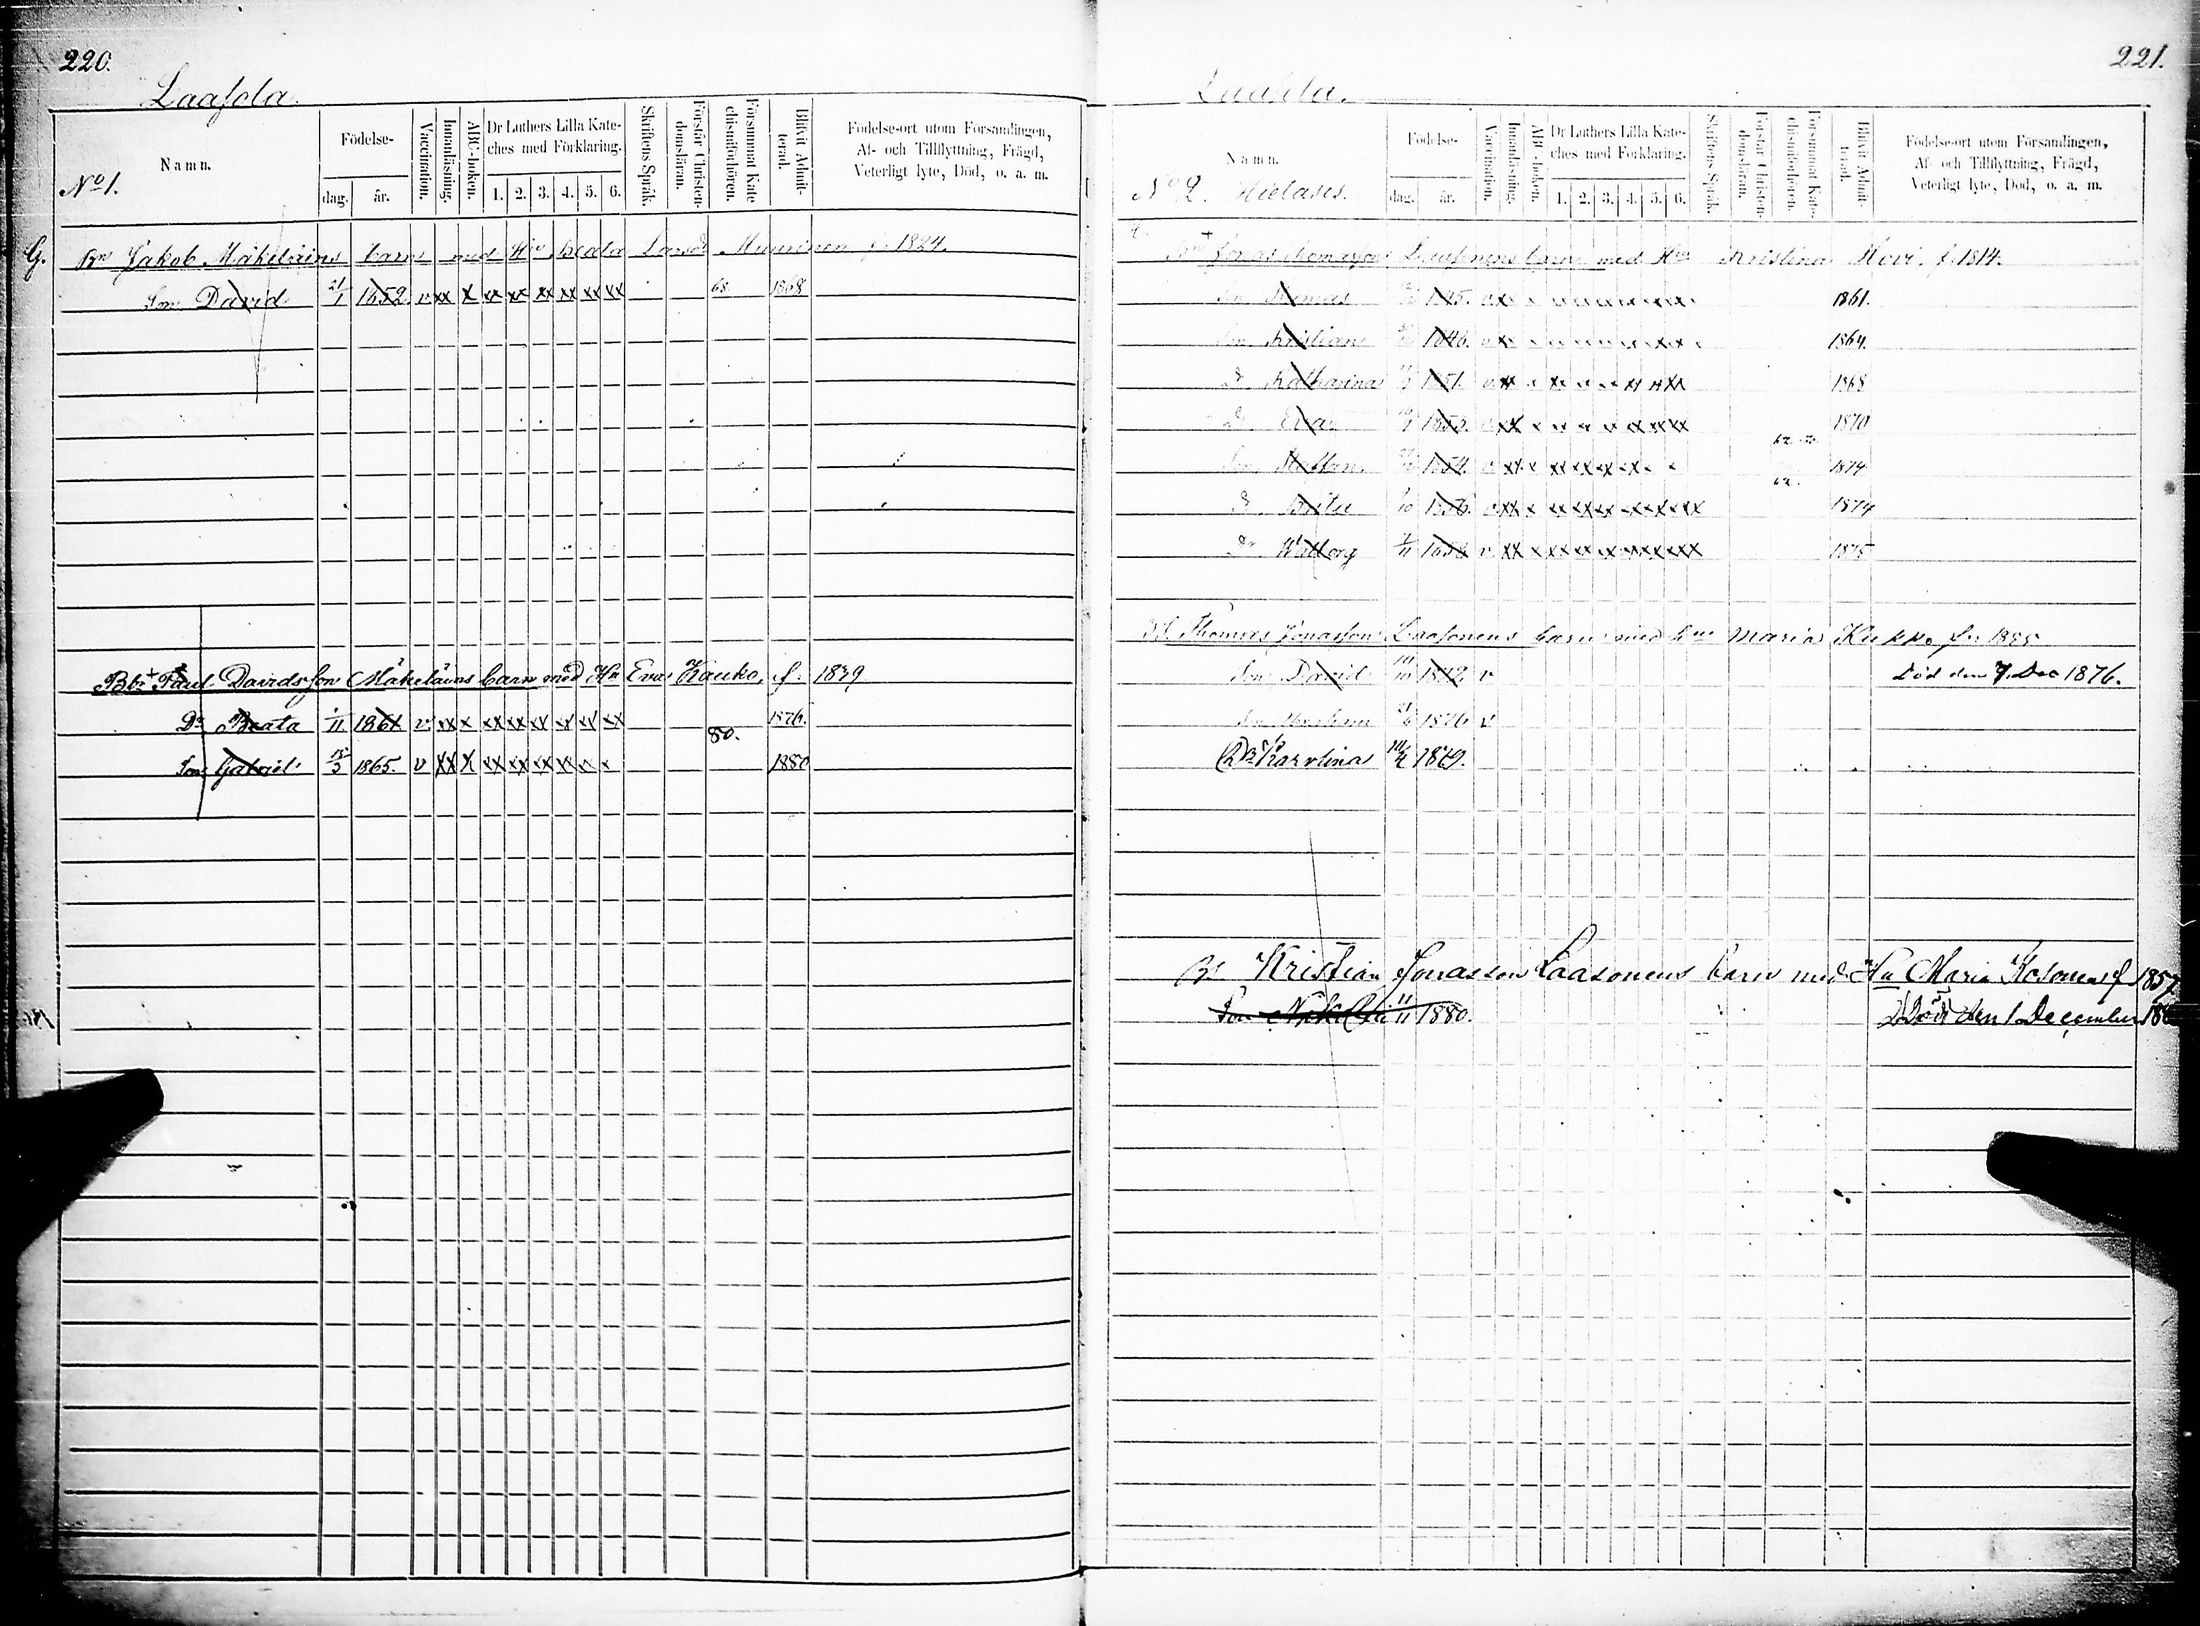 220.
Laasola.
Namn.
No 1.
Födelse-
dag. år.
Vaccination.
Innanläsning.
ABC-boken.
Dr Luthers Lilla Kate-
ches med Förklaring.
1. 2. 3. 4. 5. 6.
Skriftens Språk.
Förstår Christen-
domsläran.
Försummat Kate
chismiförhören.
Blifvit Admit-
terad.
Födelse-ort utom Församlingen,
Af- och Tillflyttning, Frägd,
Veterligt lyte, Död, o. a. m.
G. Bn Jakob Mäkeläins barn med Hu Beata Larsdr Muurinen f. 1824.
Son David 21/1 1852. v xx x xx xx xx xx xx xx 68 1868
Bbr + Paul Davidsson Mäkeläins barn med Hu Eva Kauko, f. 1839
Dr Beata 1/11 1861 v xx x xx xx xx xx xx xx 80. 1876.
Son Gabriel 15/3 1865. v xx x xx xx xx xx x x 1880
221.
Laasola.
Namn.
No 2. Hietases.
Födelse-
dag. år.
Vaccination.
Innanläsning.
ABC-boken.
Dr Luthers Lilla Kate-
ches med Förklaring.
1. 2. 3. 4. 5. 6.
Skriftens Språk.
Förstår Christen-
domsläran.
Försummat Kate-
chismiförhören.
Blifvit Admit-
terad.
Födelse-ort utom Församlingen,
Af- och Tillflyttning, Frägd,
Veterligt lyte, Död, o. a. m.
Bn + Jonas Thomasson Laasonens barn med Hu Kristina Hovi. f. 1814.
Son Thomas 1845. 1861.
Son Kristian 1846. 1864.
Dr Katharina 1851. 1868
Dr Eva 1853. 1870
Son Staffan 1854. 1874
Dr Brita 1856. 1874
Dr Walborg 1858 1875
Thomas Jonasson Laasonens barn med hu Maria Kukko f. 1855
Son David 1872. v Död den 7. Dec 1876.
Son 1876 v
Dr Karolina 1879.
Br Kristian Jonasson Laasonens barn med Hu Maria Kosonen f 1857
Son Nikolai 11/11 1880. Död den 1 December